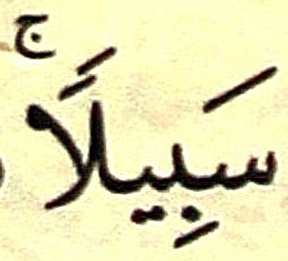 سَبِيلًاۚ